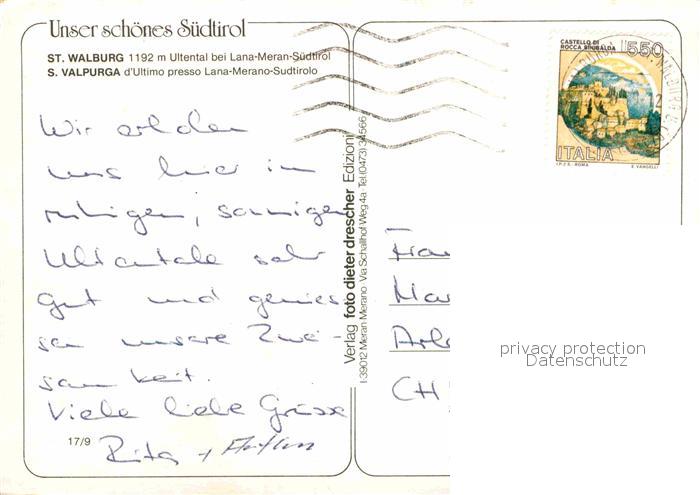 Unser schönes Südtirol
ST. WALBURG 1192 m Ultental bei Lana-Meran-Südtirol
S. VALPURGA d'Ultimo presso Lana-Merano-Sudtirolo
Wir erholen
uns hier im
ruhigen, sonnigen
Ultentale sehr
gut und genies
sen unsere Zwei-
samkeit.
Viele liebe Grüsse
Rita +
17/9
Verlag foto dieter drescher Edizioni
I-39012 Meran Merano Via Schaffhof Weg 4a Tel.(0473)34566
CASTELLO DI
ROCCA SINIBALDA
550
ITALIA
I.P.Z.S. - ROMA
E. VANGELLI
Frau
Mar
Arl
CH
privacy protection
Datenschutz